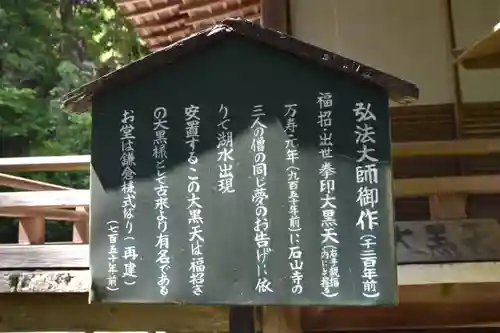 弘法大師御作(千二百年前)
福招・出世拳印大黒天(右手親指内にじぎ是)
万寿元年(九百五十年前)に石山寺の
三人の僧の同じ夢のお告げに依
りて湖水出現
安置するこの大黒天は福招き
の大黒様と古来より有名である
お堂は鎌倉様式なり(再建)
(七百五十年前)
大黒